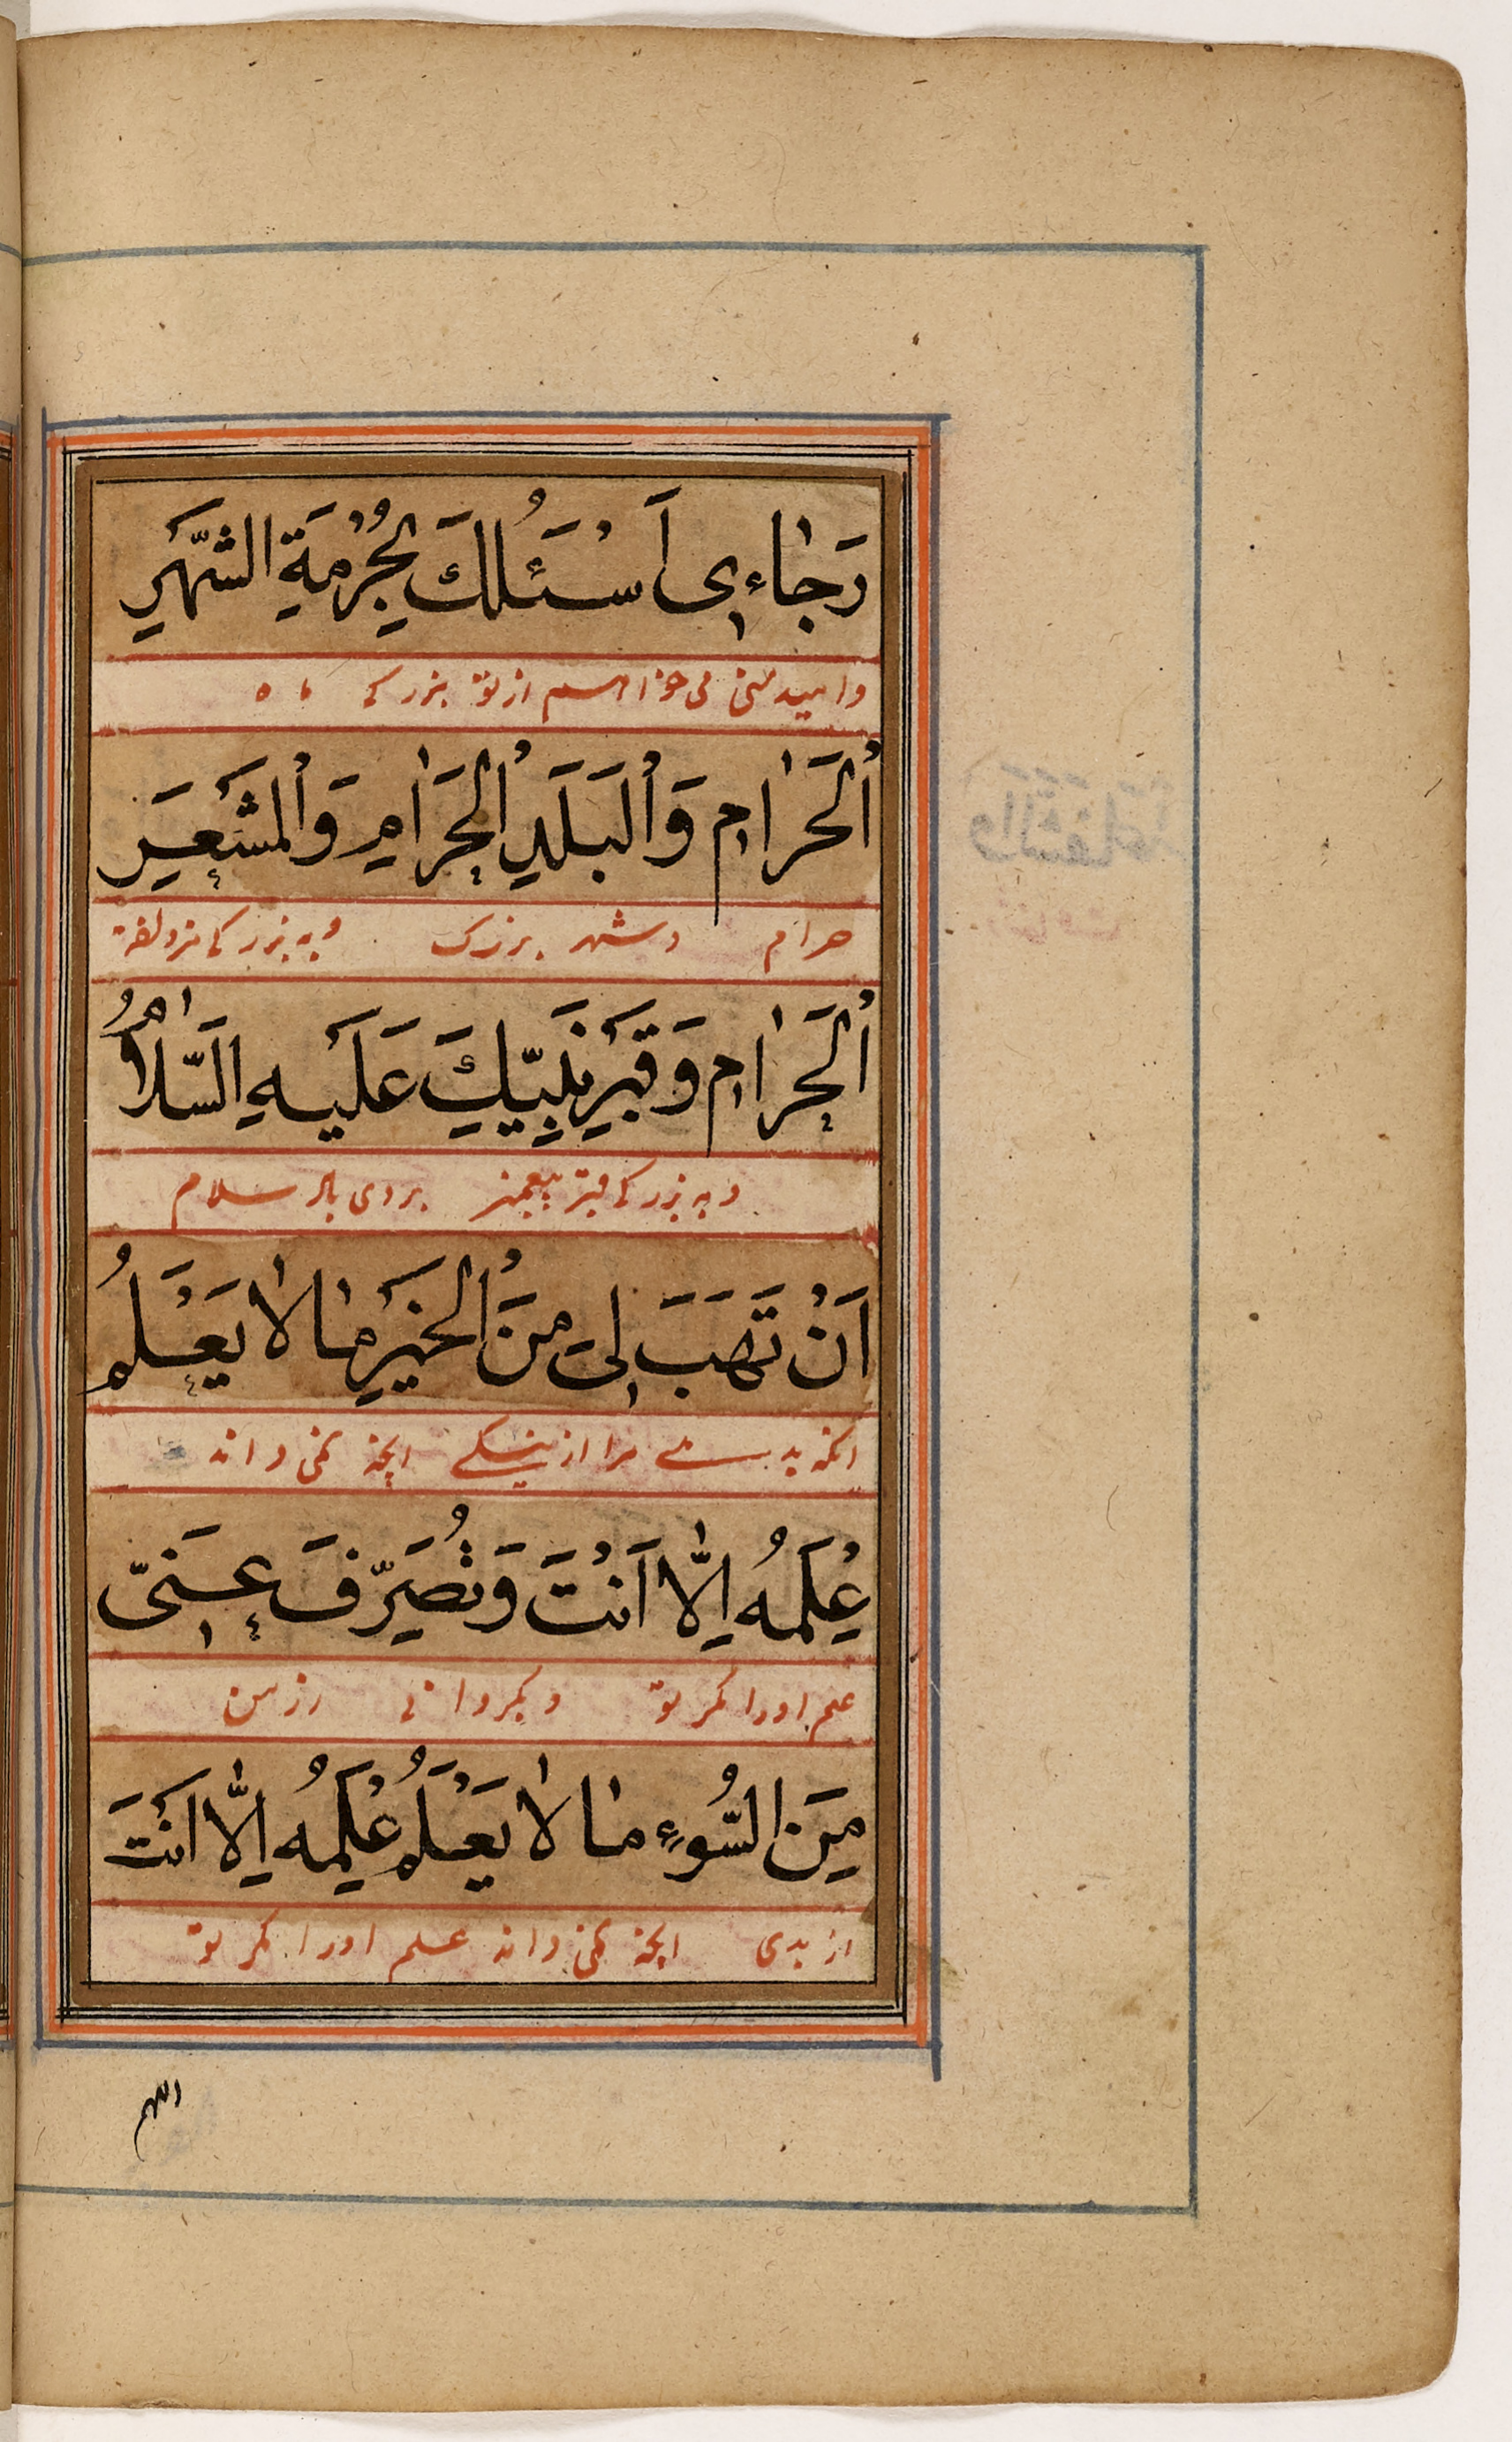 رَجٰاءٖى اَسْئَلُكَ بِحُرْمَةِ الشَّهْرِ
و امید منی می خواهم از تو بزرکی ماه
اْلحَرٰامِ وَاْلبَلَدِ اْلحَرٰامِ وَاْلمَشْعَرِ
حرام و شهر بزرک و به بزرکی مزدلفه
اْلحَرٰامِ وَقَبْرِ نَبِيِّكَ عَلَيْهِ السَّلٰامُ
و به بزرکی قبر پیغمبر بروی باد سلام
اَنْ تَهَبَ لٖى مِنَ اْلخَيْرِ مٰا لٰا يَعْلَمُ
انکه بد مرا از نیکے انچه نمی داند
عِلْمَهُ اِلّٰا اَنْتَ وَتُصَرِّفَ عَنّٖى
علم اورا مکر تو و بکردانی از من
مِنَ السُّوءِ مٰا لٰا يَعْلَمُ عِلْمَهُ اِلّٰا اَنْتَ
از بدی انچه نمی داند علم اورا مکر تو
اللهم